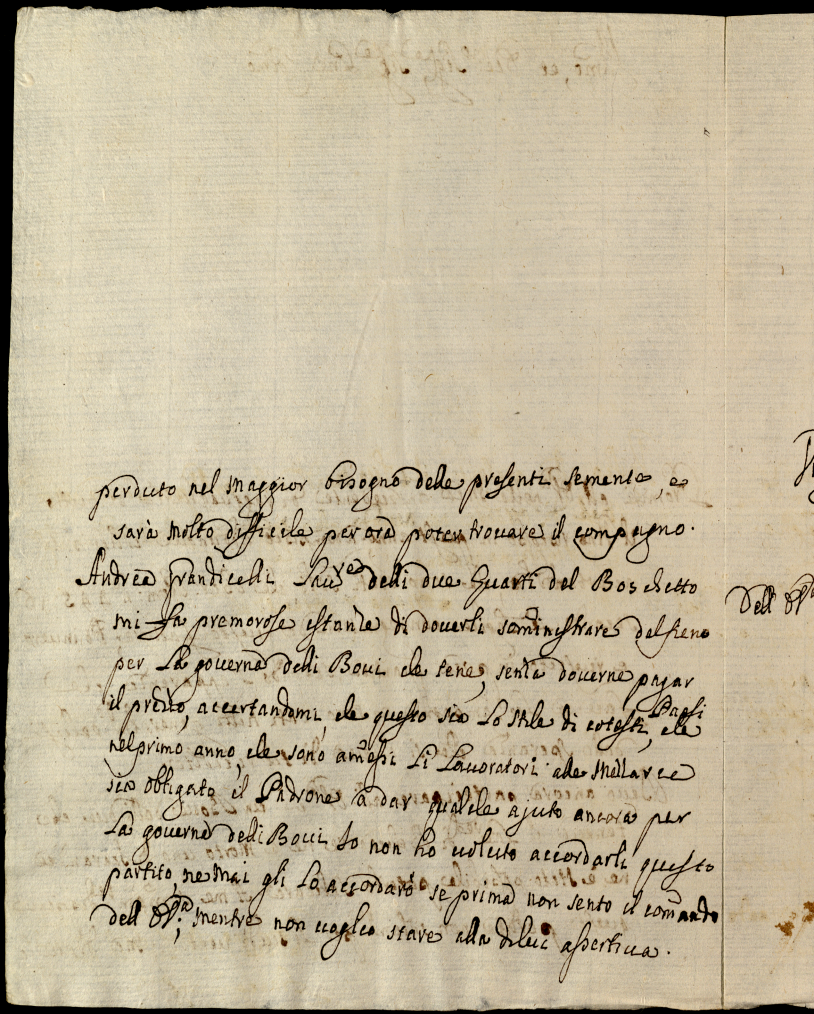 perduto nel maggior bisogno delle presenti semente, e
sarà molto difficile per ora poter trovare il compagno.
Andrea Grandicelli Lau.re delli due Quarti del Boschetto
mi fa premorose istanze di doverli somministrare del fieno
per La governa delli Bovi che tiene, senza doverne pagar
il prezzo, accertandomi, che questo sia Lo stile di cotesti Paesi, che
nel primo anno, che sono amessi Li Lavoratori alle
sia obligato il Padrone a dar qualche ajuto ancora per
La governa delli Bovi Io non ho voluto accordarli questo
partito, ne mai gli Lo accordarò se prima non sento il comando
dell mentre non voglio stare alla di lui assertiva.